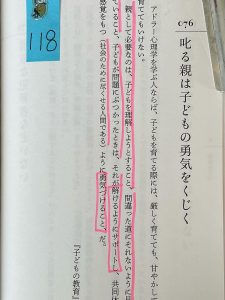 118
C76
叱る親は子どもの勇気をくじく
アドラー心理学を学ぶ人ならば、子どもを育てる際には、厳しく育てても、甘やかし
育ててもいけない。
親として必要なのは、子どもを理解しようとすること、間違った道にそれないように
ていること、子どもが問題にぶつかったときは、それが解けるようにサポートし、共同体
感覚をもつ（社会のために尽くせる人間である）ように勇気づけること、だ。
『子どもの教育』